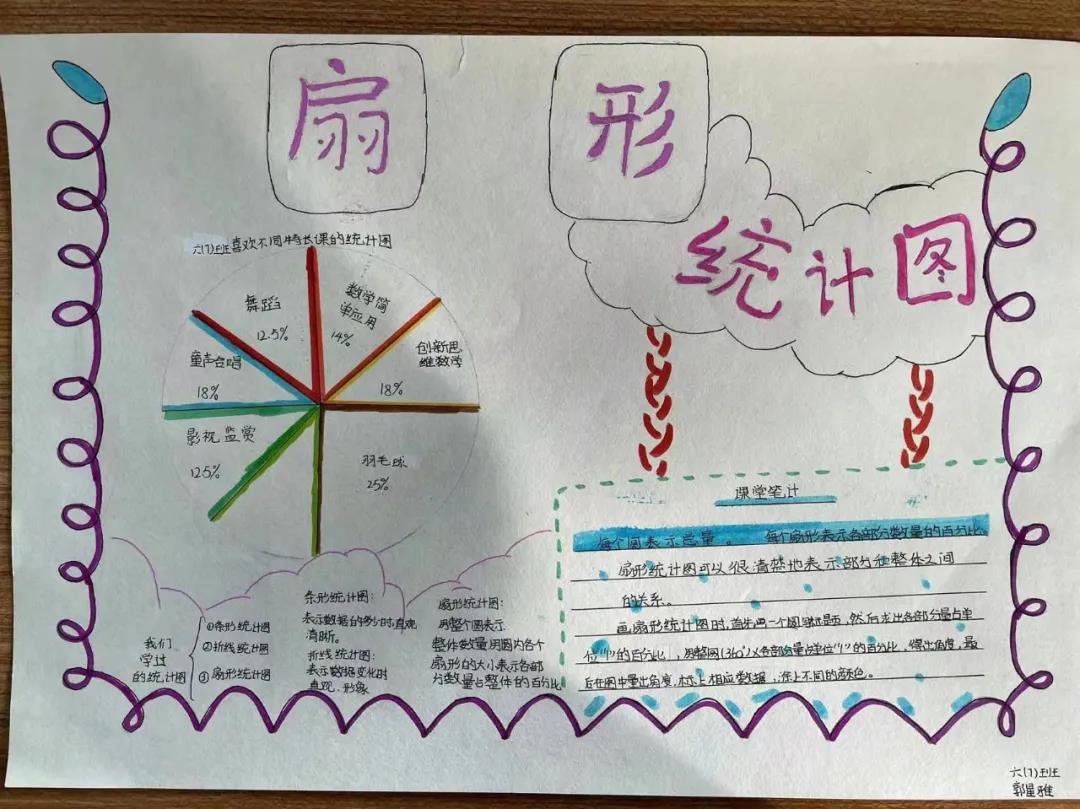 扇形
统计图
六(7)班喜欢不同特长课的统计图
舞蹈
12.5%
数学简
单应用
14%
创新思
维数学
18%
童声合唱
18%
影视监赏
12.5%
羽毛球
25%
我们
学过
的统计图
①条形统计图
②折线统计图
③扇形统计图
条形统计图:
表示数据的多少时,直观
清晰。
折线统计图:
表示数据变化时
直观,形象
扇形统计图:
用整个圆表示
整体数量用圆内各个
扇形的大小表示各部
分数量占整体的百分比
课堂笔计
每个圆表示总量。 每个扇形表示各部分数量的百分比
扇形统计图可以很清楚地表示部分和整体之间
的关系。
画扇形统计图时,首先画一个圆,然后求出各部分量占单
位"1"的百分比,用整圆(360°)×各部分量占单位"1"的百分比,得出角度,最
后在图中量出角度,标上相应数据,涂上不同的颜色。
六(7)班
郭星雅